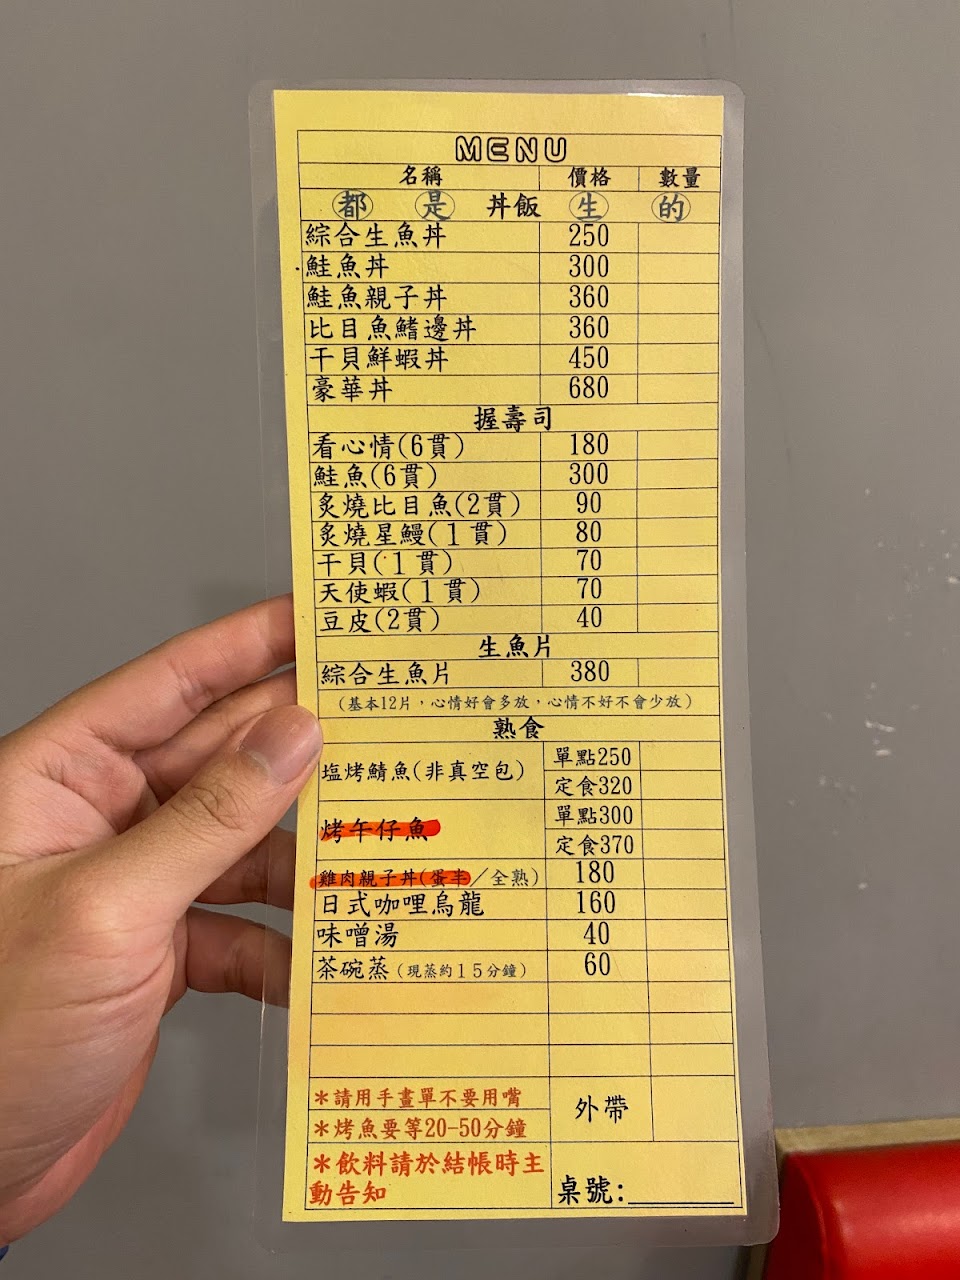 MENU
名稱 價格 數量
都 是 丼飯 生 的
綜合生魚丼 250
鮭魚丼 300
鮭魚親子丼 360
比目魚鰭邊丼 360
干貝鮮蝦丼 450
豪華丼 680
握壽司
看心情(6貫) 180
鮭魚(6貫) 300
炙燒比目魚(2貫) 90
炙燒星鰻(1貫) 80
干貝(1貫) 70
天使蝦(1貫) 70
豆皮(2貫) 40
生魚片
綜合生魚片 380
(基本12片，心情好會多放，心情不好不會少放)
熟食
塩烤鯖魚(非真空包) 單點250
定食320
烤午仔魚 單點300
定食370
雞肉親子丼(蛋半/全熟) 180
日式咖哩烏龍 160
味噌湯 40
茶碗蒸(現蒸約15分鐘) 60
*請用手畫單不要用嘴
*烤魚要等20-50分鐘
外帶
*飲料請於結帳時主
動告知
桌號: